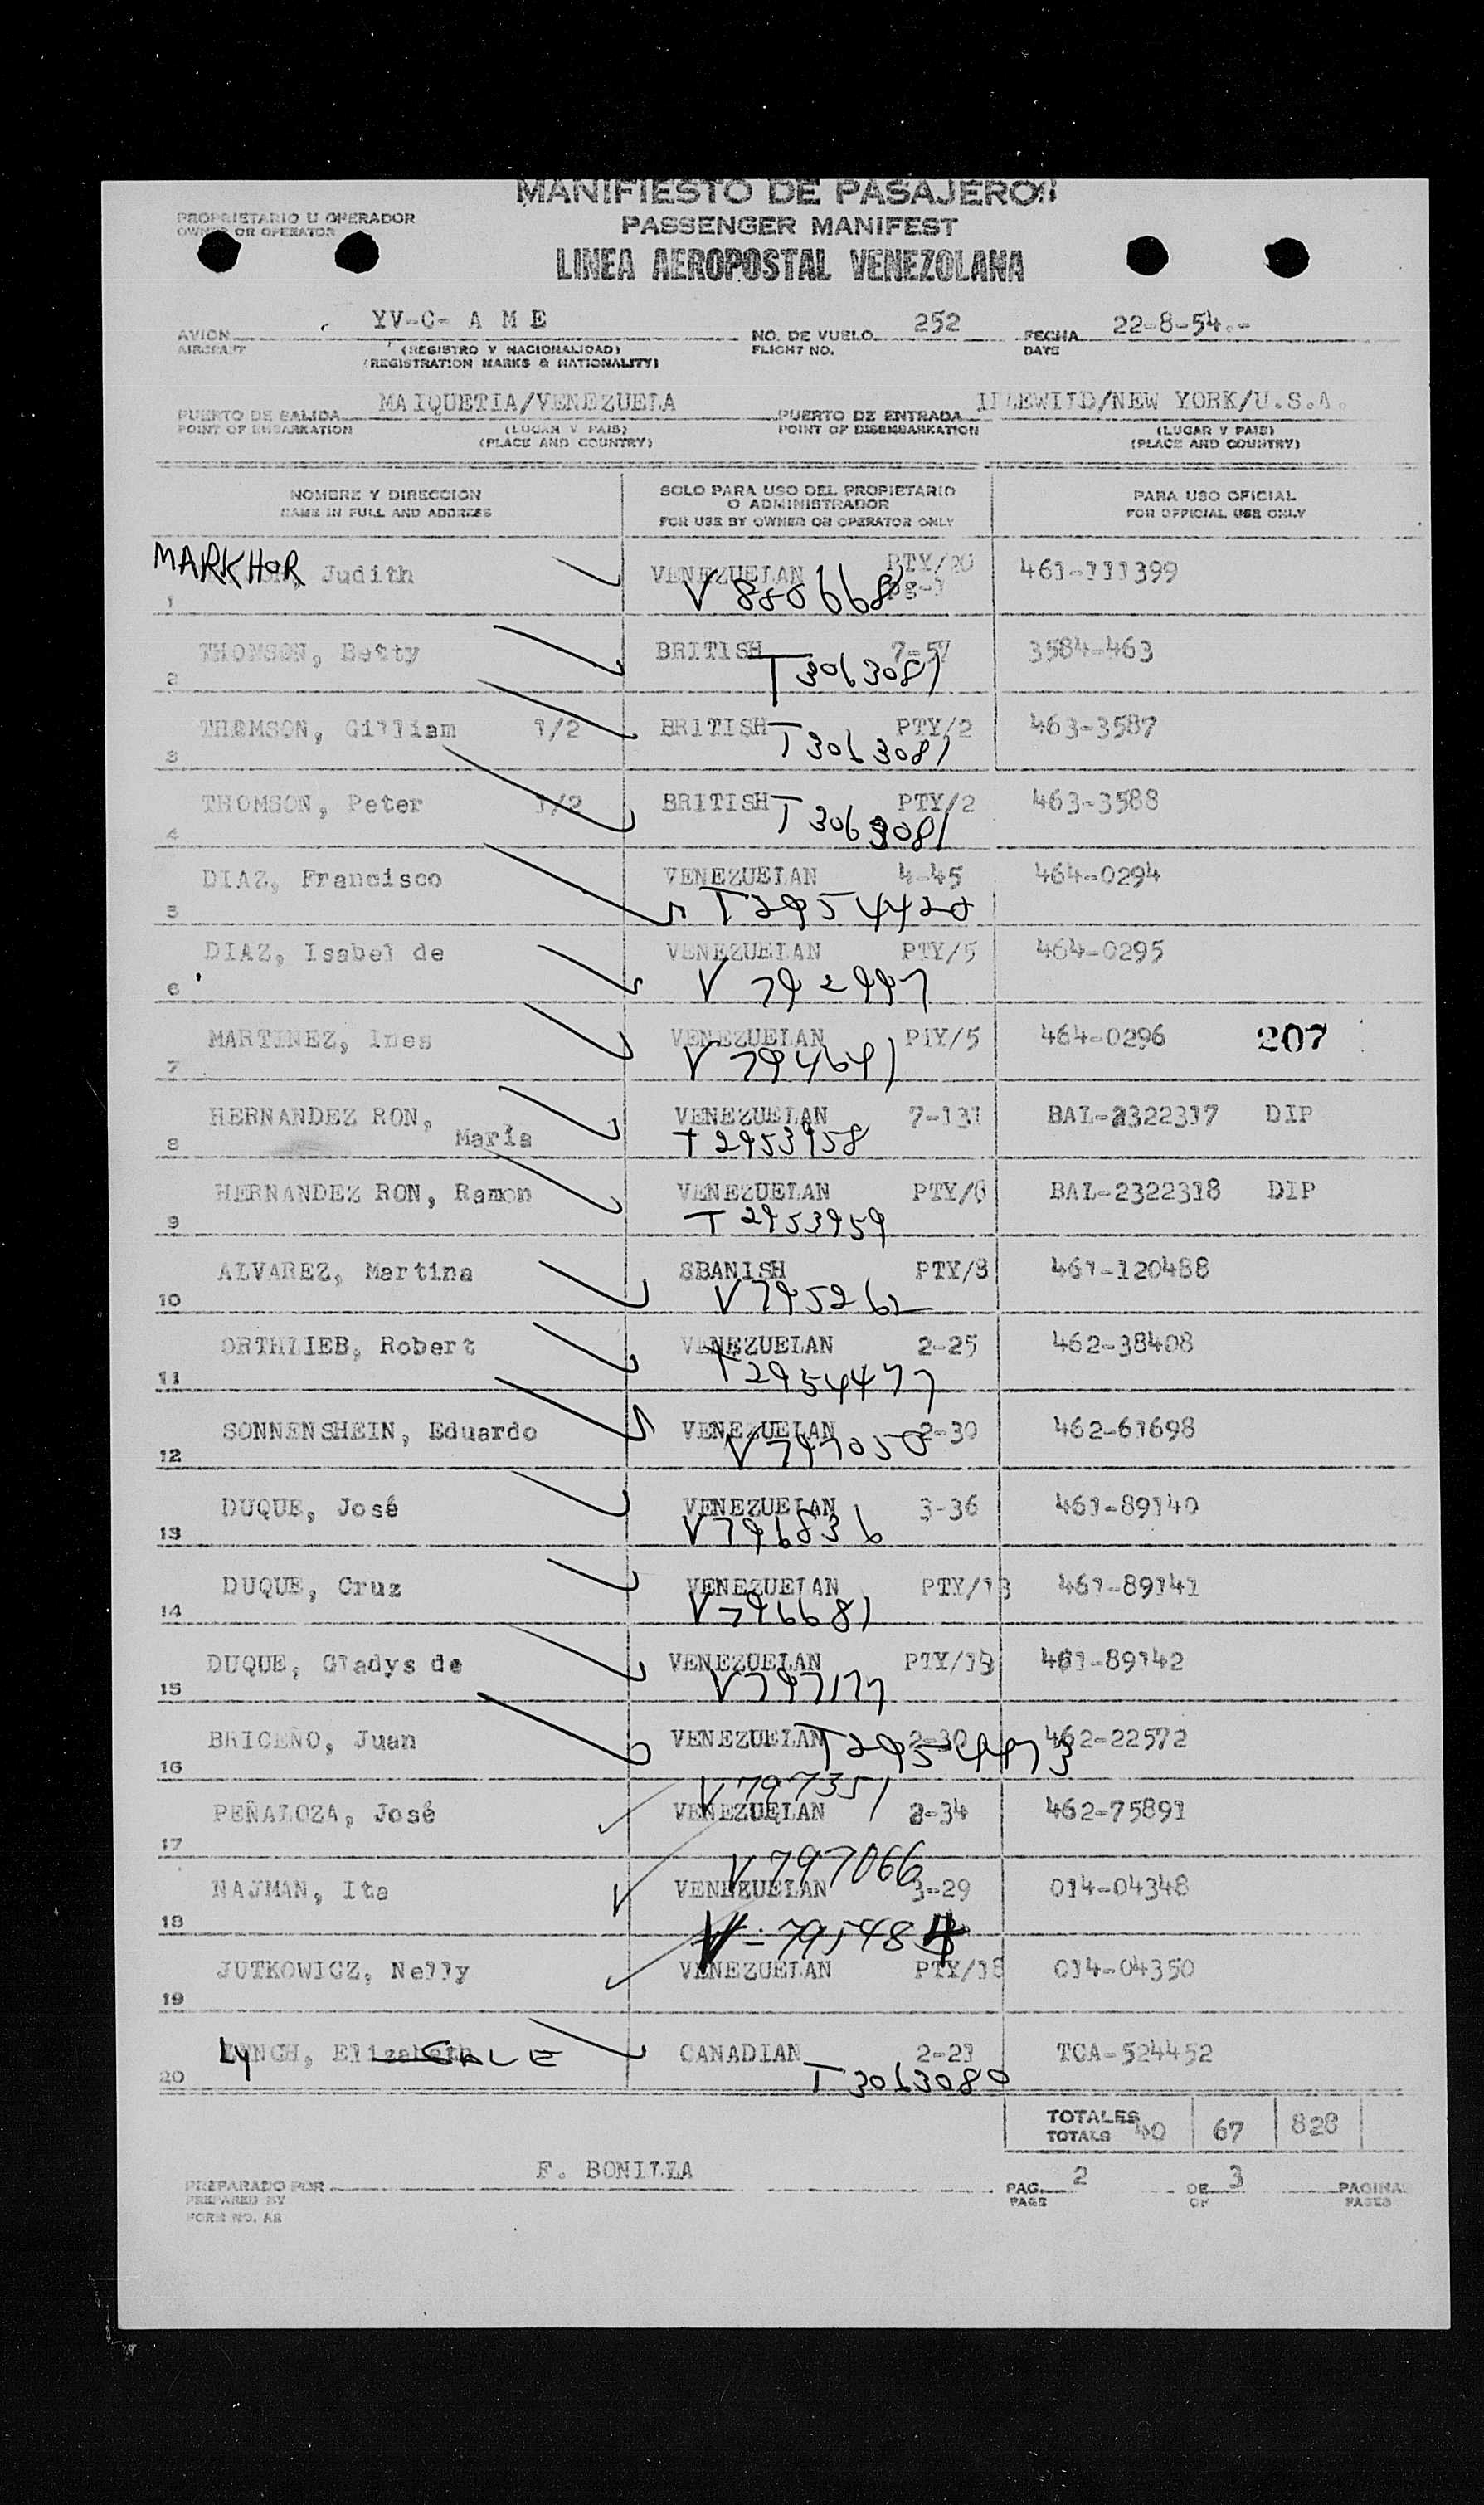 MANIFIESTO DE PASAJEROS
PROPRIETARIO U OPERADOR
OWNER OR OPERATOR
PASSENGER MANIFEST
LINEA AEROPOSTAL VENEZOLANA
AVION YV-C- A M E NO. DE VUELO 252 FECHA 22-8-54.-
AIRCRAFT (REGISTRO Y NACIONALIDAD) FLIGHT NO. DATE
(REGISTRATION MARKS & NATIONALITY)
PUERTO DE SALIDA MAIQUETIA/VENEZUELA PUERTO DE ENTRADA IDLEWILD/NEW YORK/U.S.A.
POINT OF EMBARKATION (LUGAR Y PAIS) POINT OF DISEMBARKATION (LUGAR Y PAIS)
(PLACE AND COUNTRY) (PLACE AND COUNTRY)
NOMBRE Y DIRECCION SOLO PARA USO DEL PROPIETARIO PARA USO OFICIAL
O ADMINISTRADOR
NAME IN FULL AND ADDRESS FOR USE BY OWNER OR OPERATOR ONLY FOR OFFICIAL USE ONLY
MARKHOR Judith VENEZUELAN PTY/20 461-111399
1 V 880668 pg-1
THOMSON, Betty BRITISH 7-57 3584-463
2 T3063081
THOMSON, Gilliam 1/2 BRITISH PTY/2 463-3587
3 T3063081
THOMSON, Peter 1/2 BRITISH PTY/2 463-3588
4 T3063081
DIAZ, Francisco VENEZUELAN 4-45 464-0294
5 T2954420
DIAZ, Isabel de VENEZUELAN PTY/5 464-0295
6 V 792997
MARTINEZ, Ines VENEZUELAN PTY/5 464-0296 207
7 V 794641
HERNANDEZ RON, VENEZUELAN 7-131 BAL-2322317 DIP
8 María T2953958
HERNANDEZ RON, Ramon VENEZUELAN PTY/8 BAL-2322318 DIP
9 T2953959
ALVAREZ, Martina SBANISH PTY/8 461-120488
10 V795262
ORTHLIEB, Robert VENEZUELAN 2-25 462-38408
11 T2954477
SONNENSHEIN, Eduardo VENEZUELAN 2-30 462-61698
12 V797050
DUQUE, José VENEZUELAN 3-36 461-89140
13 V796836
DUQUE, Cruz VENEZUELAN PTY/13 461-89141
14 V796681
DUQUE, Gladys de VENEZUELAN PTY/13 461-89142
15 V797177
BRICEÑO, Juan VENEZUELAN T2954473 2-30 462-22572
16
V797351
PEÑALOZA, José VENEZUELAN 2-34 462-75891
17
V797066
NAJMAN, Ita VENEZUELAN 3-29 014-04348
18
V-795484
JUTKOWICZ, Nelly VENEZUELAN PTY/18 014-04350
19
LYNCH, Elizabeth GALE CANADIAN 2-21 TCA-524452
20 T3063080
TOTALES 40 67 828
TOTALS
PREPARADO POR F. BONILLA PAG. 2 DE 3 PAGINAS
PREPARED BY PAGE OF PAGES
FORM NO. AR